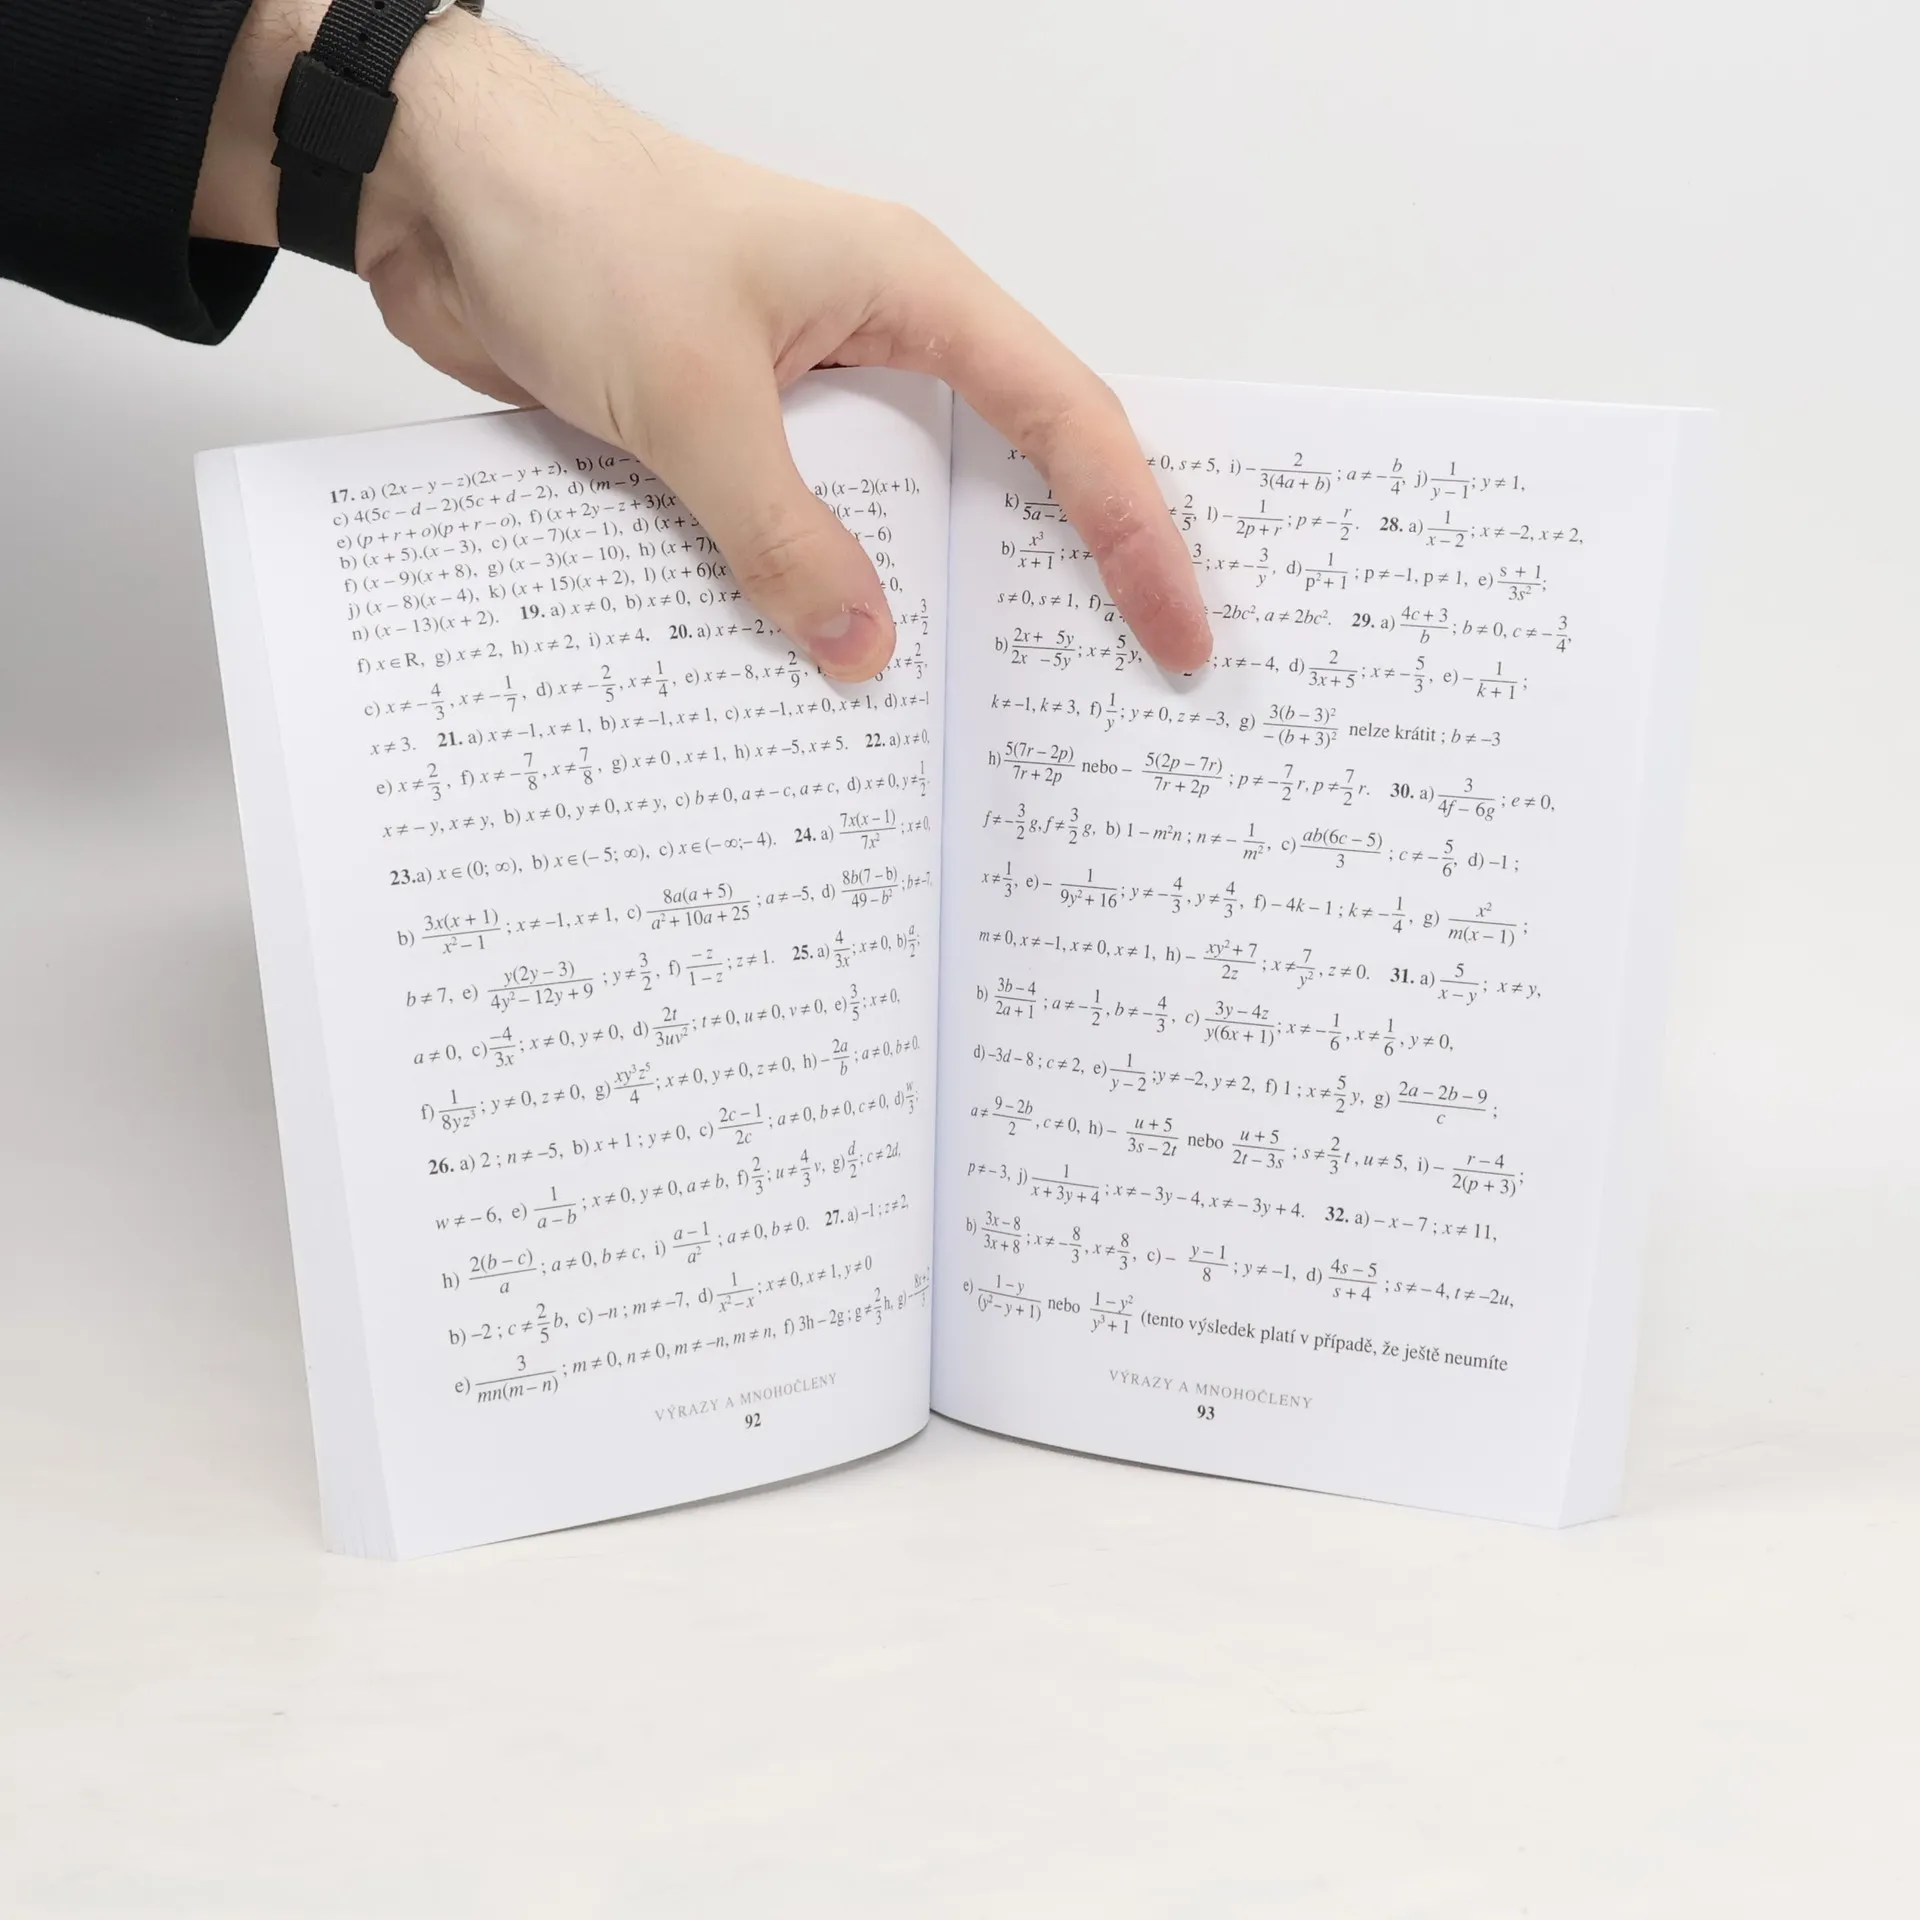 17. a) (2x – y – z)(2x – y + z), b) (a –
c) 4(5c – d – 2)(5c + d – 2), d) (m – 9 –
a) (x – 2)(x + 1),
e) (p + r + o)(p + r – o), f) (x + 2y – z + 3)(x
)(x – 4),
b) (x + 5).(x – 3), c) (x – 7)(x – 1), d) (x + 3
(x – 6)
f) (x – 9)(x + 8), g) (x – 3)(x – 10), h) (x + 7)(
9),
j) (x – 8)(x – 4), k) (x + 15)(x + 2), l) (x + 6)(x
≠ 0,
n) (x – 13)(x + 2). 19. a) x ≠ 0, b) x ≠ 0, c) x ≠
, x ≠ 3/2
f) x ∈ R, g) x ≠ 2, h) x ≠ 2, i) x ≠ 4. 20. a) x ≠ – 2,
, x ≠ 2/3,
c) x ≠ – 4/3, x ≠ – 1/7, d) x ≠ – 2/5, x ≠ 1/4, e) x ≠ – 8, x ≠ 2/9,
x ≠ 3. 21. a) x ≠ –1, x ≠ 1, b) x ≠ –1, x ≠ 1, c) x ≠ –1, x ≠ 0, x ≠ 1, d) x ≠ –1
e) x ≠ 2/3, f) x ≠ – 7/8, x ≠ 7/8, g) x ≠ 0, x ≠ 1, h) x ≠ –5, x ≠ 5. 22. a) x ≠ 0,
x ≠ – y, x ≠ y, b) x ≠ 0, y ≠ 0, x ≠ y, c) b ≠ 0, a ≠ – c, a ≠ c, d) x ≠ 0, y ≠ 1/2.
23.a) x ∈ (0; ∞), b) x ∈ (– 5; ∞), c) x ∈ (– ∞;– 4). 24. a) 7x(x – 1)/7x² ; x ≠ 0,
b) 3x(x + 1)/x² – 1 ; x ≠ –1, x ≠ 1, c) 8a(a + 5)/a² + 10a + 25 ; a ≠ –5, d) 8b(7 – b)/49 – b² ; b ≠ –7,
b ≠ 7, e) y(2y – 3)/4y² – 12y + 9 ; y ≠ 3/2, f) – z/1 – z ; z ≠ 1. 25. a) 4/3x ; x ≠ 0, b) a/2;
a ≠ 0, c) –4/3x ; x ≠ 0, y ≠ 0, d) 2t/3uv² ; t ≠ 0, u ≠ 0, v ≠ 0, e) 3/5 ; x ≠ 0,
f) 1/8yz³ ; y ≠ 0, z ≠ 0, g) xy³z⁵/4 ; x ≠ 0, y ≠ 0, z ≠ 0, h) – 2a/b ; a ≠ 0, b ≠ 0.
26. a) 2 ; n ≠ –5, b) x + 1 ; y ≠ 0, c) 2c – 1/2c ; a ≠ 0, b ≠ 0, c ≠ 0, d) w/3;
w ≠ – 6, e) 1/a – b ; x ≠ 0, y ≠ 0, a ≠ b, f) 2/3 ; u ≠ 4/3 v, g) d/2 ; c ≠ 2d,
h) 2(b – c)/a ; a ≠ 0, b ≠ c, i) a – 1/a² ; a ≠ 0, b ≠ 0. 27. a) –1 ; z ≠ 2,
b) –2 ; c ≠ 2/5 b, c) –n ; m ≠ –7, d) 1/x² – x ; x ≠ 0, x ≠ 1, y ≠ 0
e) 3/mn(m – n) ; m ≠ 0, n ≠ 0, m ≠ –n, m ≠ n, f) 3h – 2g ; g ≠ 2/3 h, g)
VÝRAZY A MNOHOČLENY
92
x ≠ 0, s ≠ 5, i) – 2/3(4a + b) ; a ≠ – b/4, j) 1/y – 1 ; y ≠ 1,
k) 1/5a – 2 ≠ 2/5, l) – 1/2p + r ; p ≠ – r/2. 28. a) 1/x – 2 ; x ≠ –2, x ≠ 2,
b) x³/x + 1 ; x ≠ 3 ; x ≠ – 3/y, d) 1/p² + 1 ; p ≠ –1, p ≠ 1, e) s + 1/3s² ;
s ≠ 0, s ≠ 1, f) – –2bc², a ≠ 2bc². 29. a) 4c + 3/b ; b ≠ 0, c ≠ – 3/4,
b) 2x + 5y/2x – 5y ; x ≠ 5/2 y, ; x ≠ – 4, d) 2/3x + 5 ; x ≠ – 5/3, e) – 1/k + 1 ;
k ≠ –1, k ≠ 3, f) 1/y ; y ≠ 0, z ≠ –3, g) 3(b – 3)²/– (b + 3)² nelze krátit ; b ≠ –3
h) 5(7r – 2p)/7r + 2p nebo – 5(2p – 7r)/7r + 2p ; p ≠ – 7/2 r, p ≠ 7/2 r. 30. a) 3/4f – 6g ; e ≠ 0,
f ≠ – 3/2 g, f ≠ 3/2 g, b) 1 – m²n ; n ≠ – 1/m², c) ab(6c – 5)/3 ; c ≠ – 5/6, d) –1 ;
x ≠ 1/3, e) – 1/9y² + 16 ; y ≠ – 4/3, y ≠ 4/3, f) – 4k – 1 ; k ≠ – 1/4, g) x²/m(x – 1) ;
m ≠ 0, x ≠ –1, x ≠ 0, x ≠ 1, h) – xy² + 7/2z ; x ≠ 7/y², z ≠ 0. 31. a) 5/x – y ; x ≠ y,
b) 3b – 4/2a + 1 ; a ≠ – 1/2, b ≠ – 4/3, c) 3y – 4z/y(6x + 1) ; x ≠ – 1/6, x ≠ 1/6, y ≠ 0,
d) –3d – 8 ; c ≠ 2, e) 1/y – 2 ; y ≠ –2, y ≠ 2, f) 1 ; x ≠ 5/2 y, g) 2a – 2b – 9/c ;
a ≠ 9 – 2b/2, c ≠ 0, h) – u + 5/3s – 2t nebo u + 5/2t – 3s ; s ≠ 2/3 t, u ≠ 5, i) – r – 4/2(p + 3) ;
p ≠ –3, j) 1/x + 3y + 4 ; x ≠ – 3y – 4, x ≠ – 3y + 4. 32. a) – x – 7 ; x ≠ 11,
b) 3x – 8/3x + 8 ; x ≠ – 8/3, x ≠ 8/3, c) – y – 1/8 ; y ≠ –1, d) 4s – 5/s + 4 ; s ≠ – 4, t ≠ –2u,
e) 1 – y/(y² – y + 1) nebo 1 – y²/y³ + 1 (tento výsledek platí v případě, že ještě neumíte
VÝRAZY A MNOHOČLENY
93